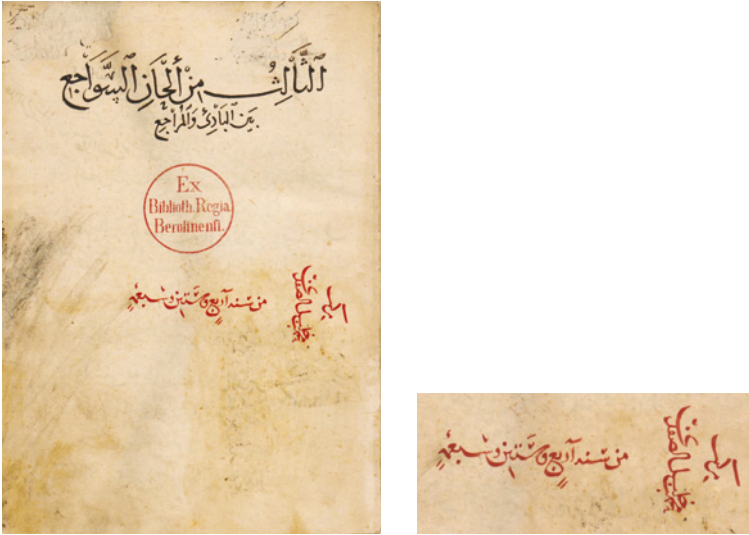 الثَّالِثُ مِنْ أَلْحَانِ السَّوَاجِعِ
بَيْنَ البَادِئِ وَالمُرَاجِعِ
Ex
Biblioth. Regia
Berolinensi.
من سنة أربع وستين وسبعمئة
من سنة أربع وستين وسبعمئة